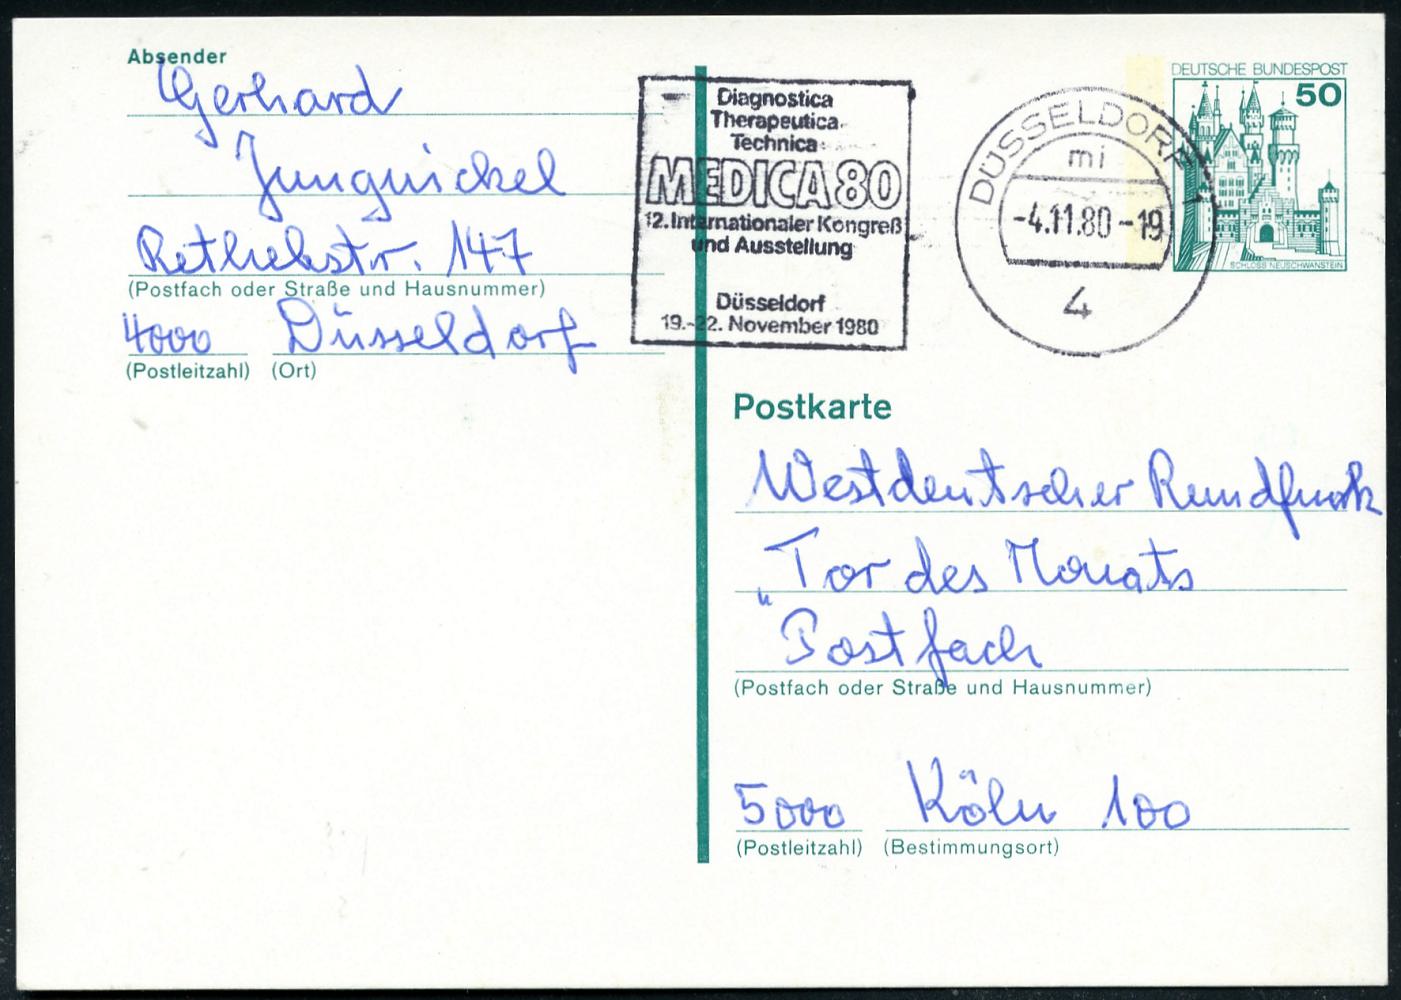 Absender
Gerhard
Junguickel
Rethelstr. 147
(Postfach oder Straße und Hausnummer)
4000 Düsseldorf
(Postleitzahl) (Ort)
Diagnostica
Therapeutica
Technica
MEDICA 80
12. Internationaler Kongreß
und Ausstellung
Düsseldorf
19.-22. November 1980
DÜSSELDORF 1
mi
-4.11.80-19
4
DEUTSCHE BUNDESPOST
50
SCHLOSS NEUSCHWANSTEIN
Postkarte
Westdeutscher Rundfunk
Tor des Monats
" Postfach
(Postfach oder Straße und Hausnummer)
5000 Köln 100
(Postleitzahl) (Bestimmungsort)